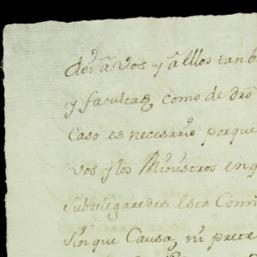 doi a vos y a ellos tanb
y facultad como de dro
Caso es necesario porque
vos y los Ministros en q
Subdelegaredes esta Comi
sin que Causa, ni prete